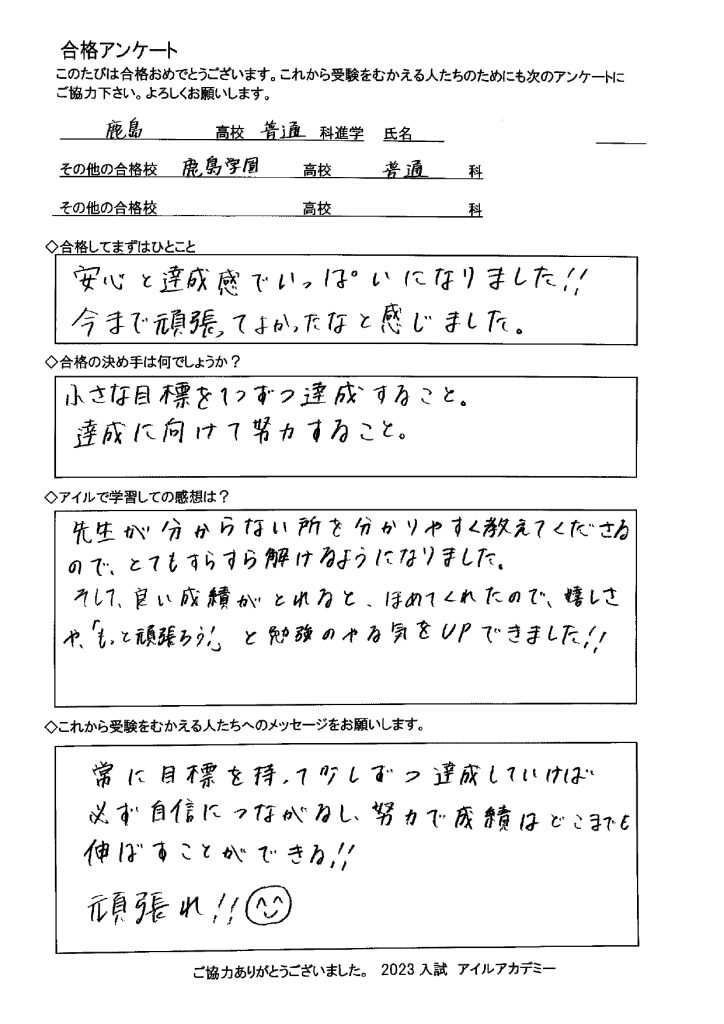 合格アンケート
このたびは合格おめでとうございます。これから受験をむかえる人たちのためにも次のアンケートに
ご協力下さい。よろしくお願いします。
鹿島 高校 普通 科進学 氏名
その他の合格校 鹿島学園 高校 普通 科
その他の合格校 高校 科
◇合格してまずはひとこと
安心と達成感でいっぱいになりました!!
今まで頑張ってよかったなと感じました。
◇合格の決め手は何でしょうか？
小さな目標を1つずつ達成すること。
達成に向けて努力すること。
◇アイルで学習しての感想は？
先生が分からない所を分かりやすく教えてくださる
ので、とてもすらすら解けるようになりました。
そして、良い成績がとれると、ほめてくれたので、嬉しさ
や、「もっと頑張ろう!」と勉強のやる気をUPできました!!
◇これから受験をむかえる人たちへのメッセージをお願いします。
常に目標を持って少しずつ達成していけば
必ず自信につながるし、努力で成績はどこまでも
伸ばすことができる!!
頑張れ!!
ご協力ありがとうございました。 2023 入試 アイルアカデミー